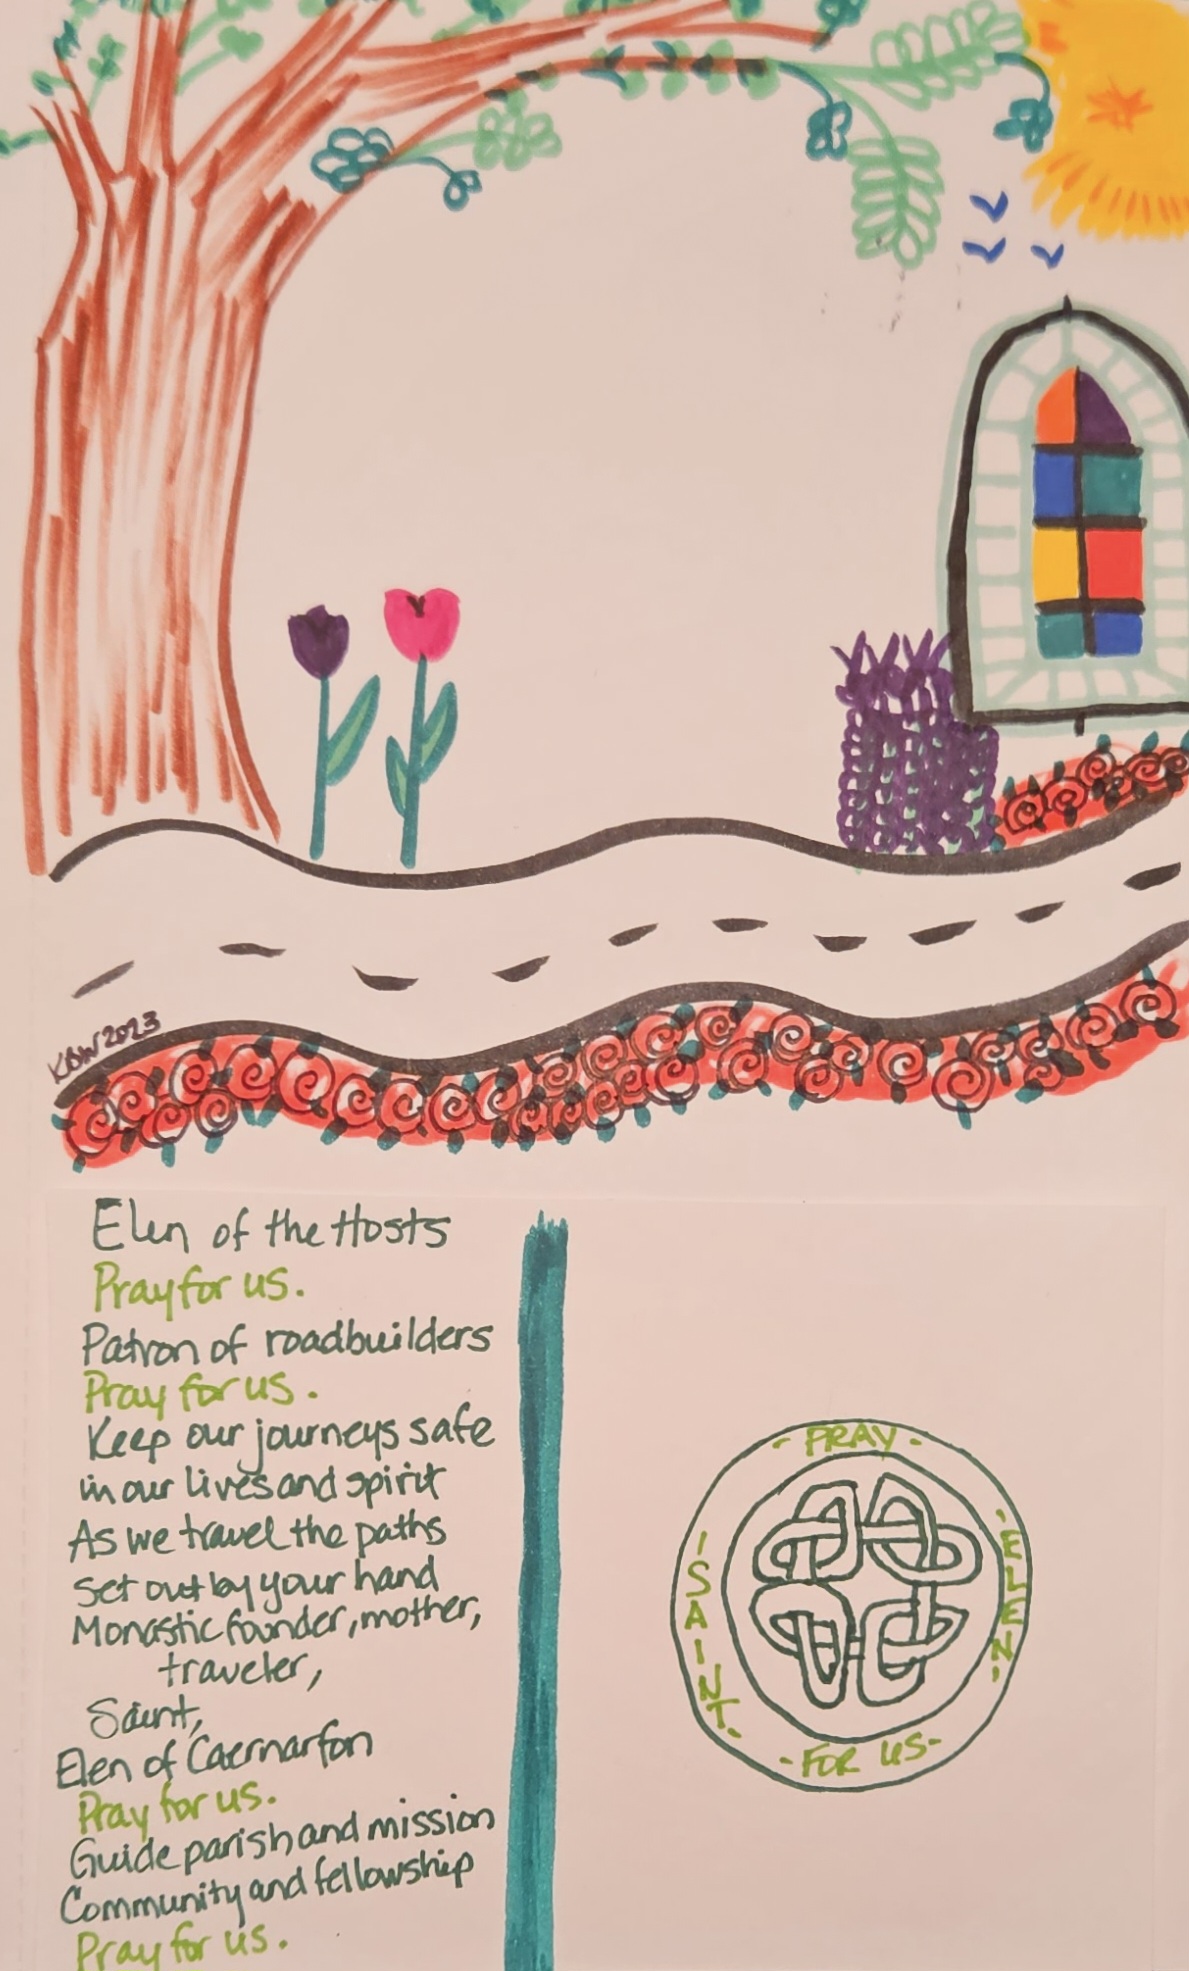 KBW 2023
Elen of the Hosts
Pray for us.
Patron of roadbuilders
Pray for us.
Keep our journeys safe
in our lives and spirit
As we travel the paths
set out by your hand
Monastic founder, mother,
traveler,
Saint,
Elen of Caernarfon
Pray for us.
Guide parish and mission
Community and fellowship
Pray for us.
- PRAY -
SAINT
ELEN
- FOR US -